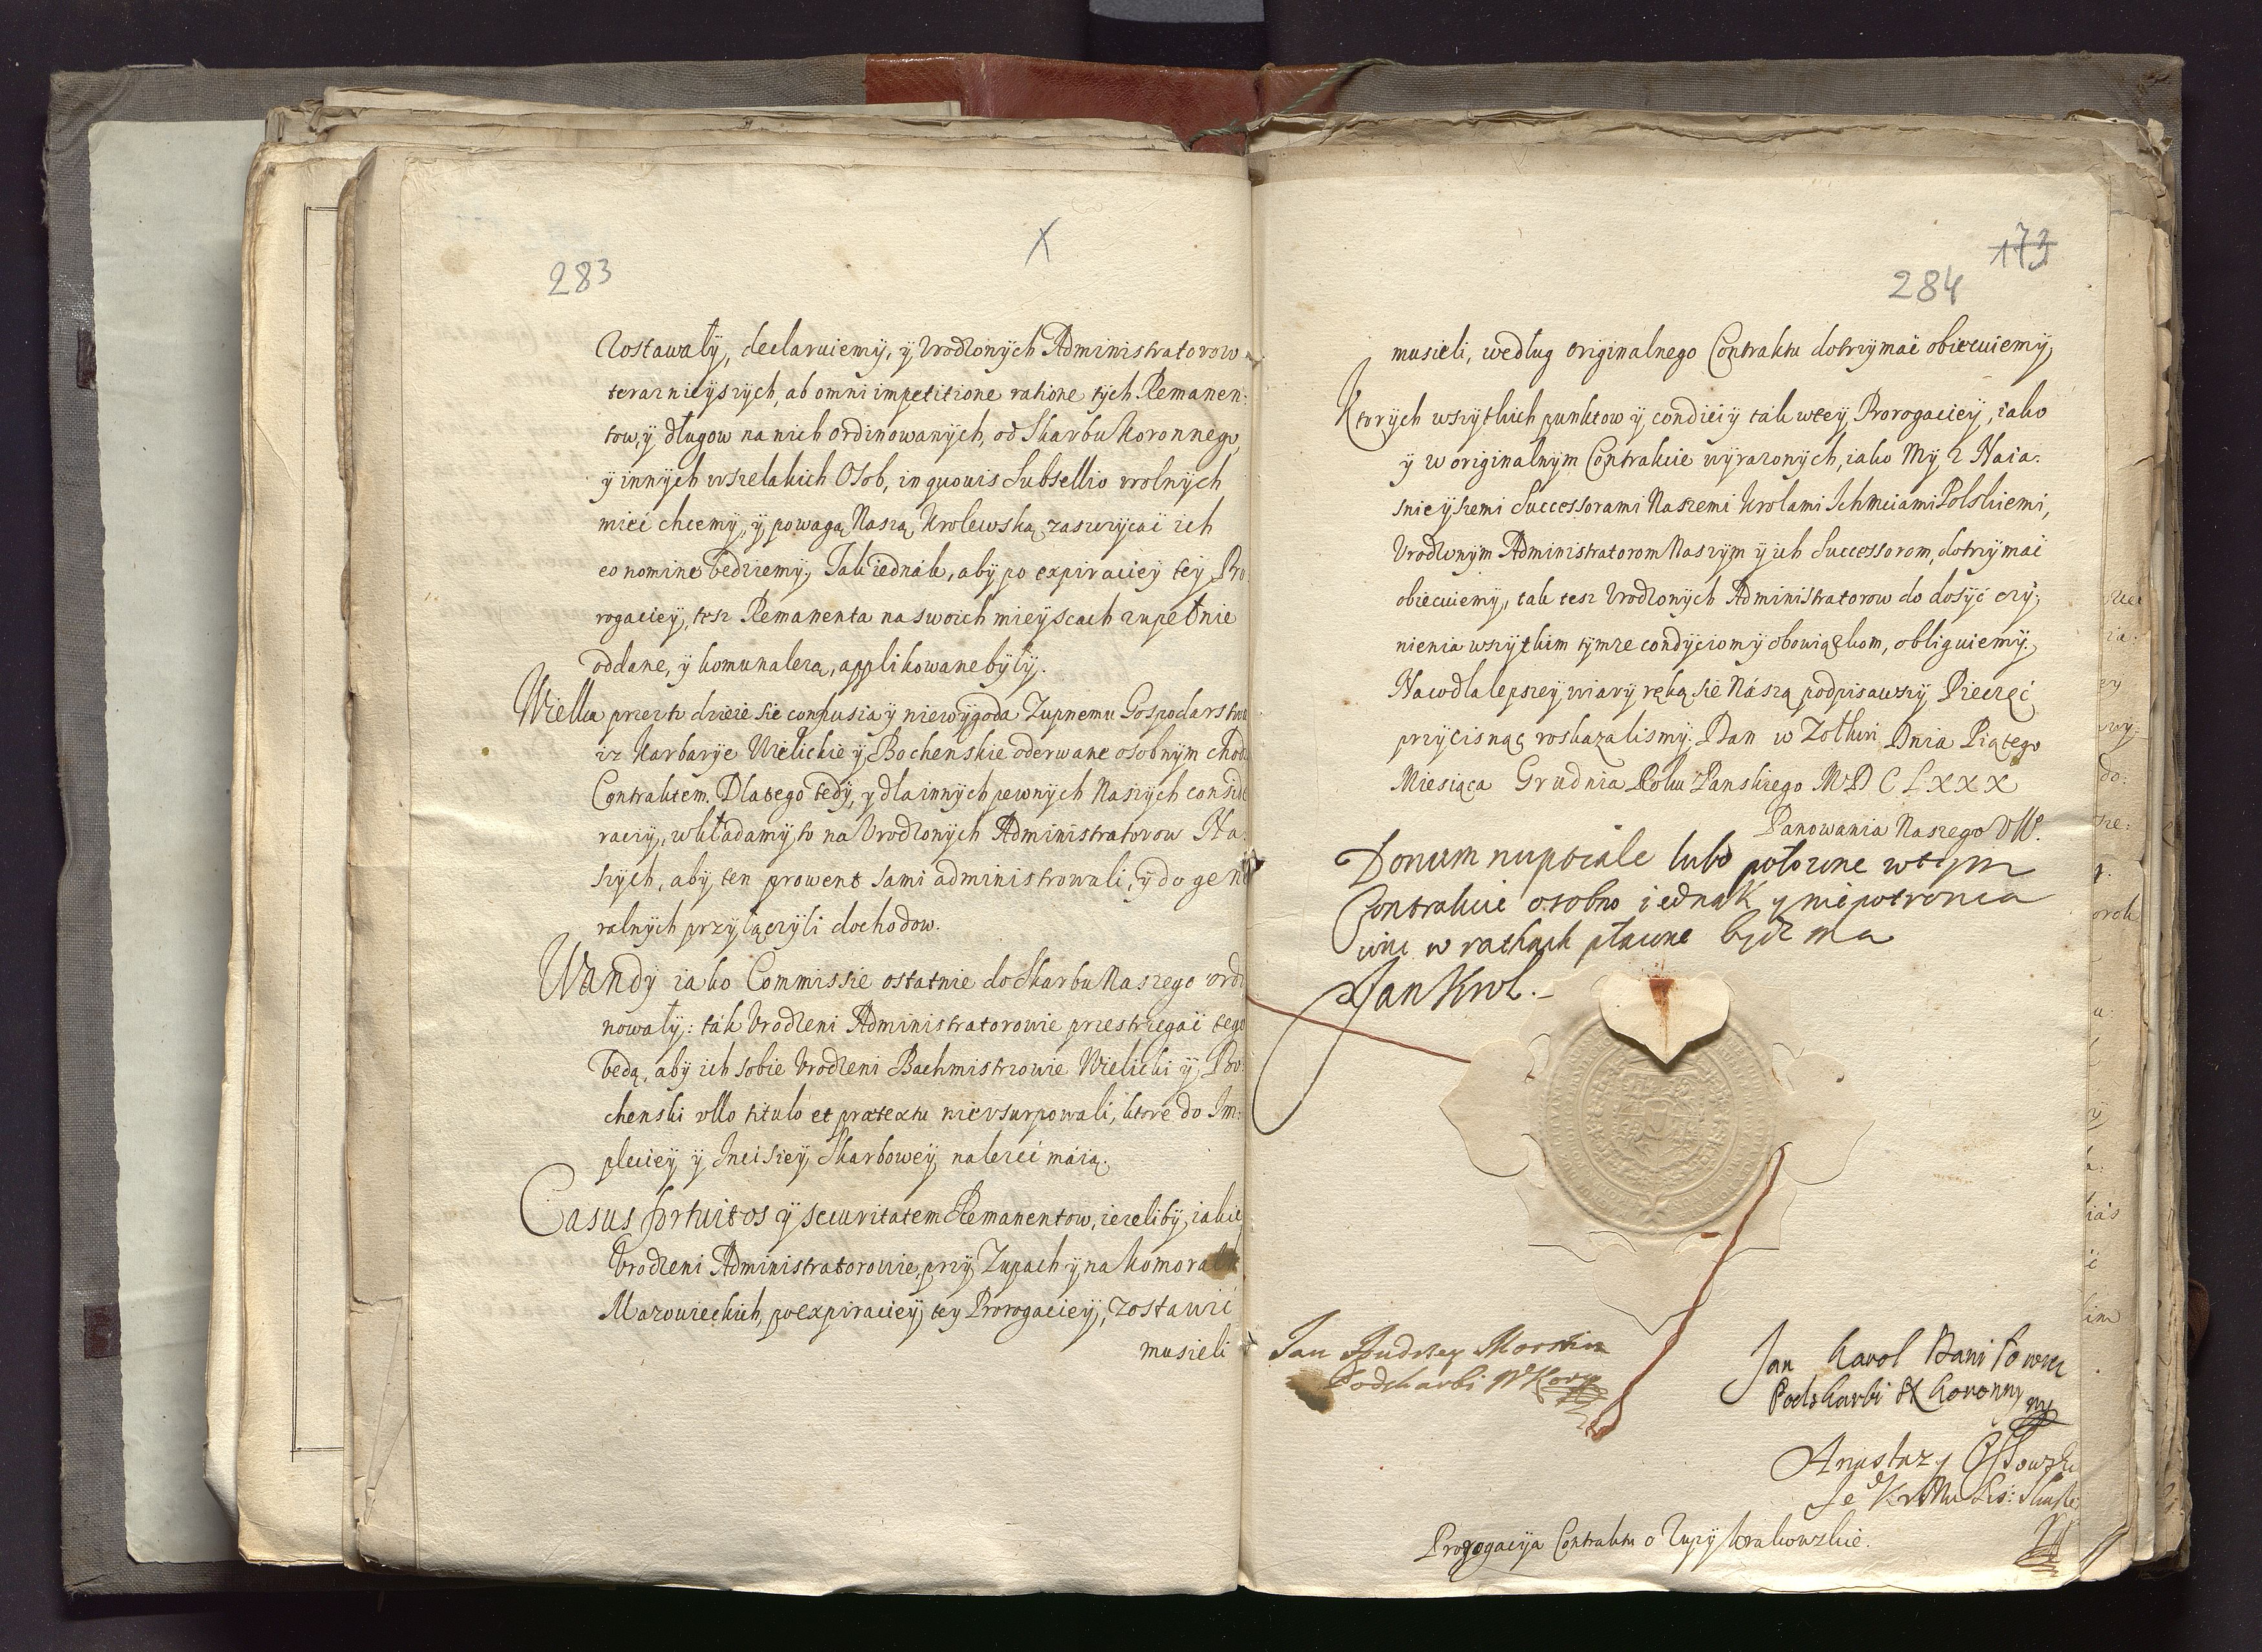 283
X
zostawały, declaruiemy, y Vrodzonych Administratorow
teraznieyszych, ab omni impetitione ratione tych Remanen:
tow, y długow na nich ordinowanych, od Skarbu Koronnego,
y innych wszelakich Osob, in quouis Subsellio wolnych
mieć chcemy, y powagą Naszą Krolewską zaszczycać ich
eo nomine bedziemy, Tak iednak, aby po expiraciey tey Pro:
rogaciey, tesz Remanenta na swoich mieyscach zupełnie
oddane, y komu należą, applikowane były.
Wielka przez to dzieie sie confusia y niewygoda Zupnemu Gospodarstwu
iz Karbarye Wielickie y Bochenskie oderwane osobnym chodz
Contraktem. Dlatego tedy, y dla innych pewnych Naszych conside
raciy, wkładamy to na Vrodzonych Administratorow Na:
szych, aby ten prowent sami administrowali, y do gene
ralnych przyłączyli dochodow.
Wandy iako Commissie ostatnie do Skarbu Naszego ordi
nowały: tak Vrodzeni Administratorowie przestrzegać tego
będą, aby ich sobie Vrodzeni Bachmistrzowie Wielicki y Bo:
chenski vllo titulo et prætextu nie vsurpowali, ktore do Im:
pleciey y Incisiey Skarbowey należeć maią.
Casus fortuitos y securitatem Remanentow, iezeliby iakie
Vrodzeni Administratorowie przy Zupach y na Komorach
Mazowieckich, po expiraciey tey Prorogaciey, zostawić
musieli
173
284
musieli, według originalnego Contraktu dotrzymać obiecuiemy,
Ktorych wszytkich punktow y condiciy tak w tey Prorogaciey, iako
y w originalnym Contrakcie wyrazonych, iako My z Naia:
snieyszemi Successorami Naszemi Krolami Ichmciami Polskiemi,
Vrodzonym Administratorom Naszym y ich Successorom, dotrzymać
obiecuiemy, tak tesz Vrodzonych Administratorow do dosyć czy:
nienia wszytkim tymze condyciom y obowiązkom, obliguiemy.
Na co dla lepszey wiary ręką się Naszą podpisawszy Pieczęć
przycisnąć roskazalismy. Dan w Zołkwi Dnia Piątego
Miesiąca Grudnia Roku Panskiego MDCLXXX
Panowania Naszego VII°.
Donum nuptiale lubo połozone w tym
Contrakcie osobno iednak y niepotronca
iąc w rathach płacone bydz ma
Jan Krol.
Jan Andrzey Morstin
Podskarbi W Kor
Jan Karol Daniłowicz
Podskarbi N Koronny
Anastazy
Je K
Prorogacya Contraktu o Zupy Krakowskie.